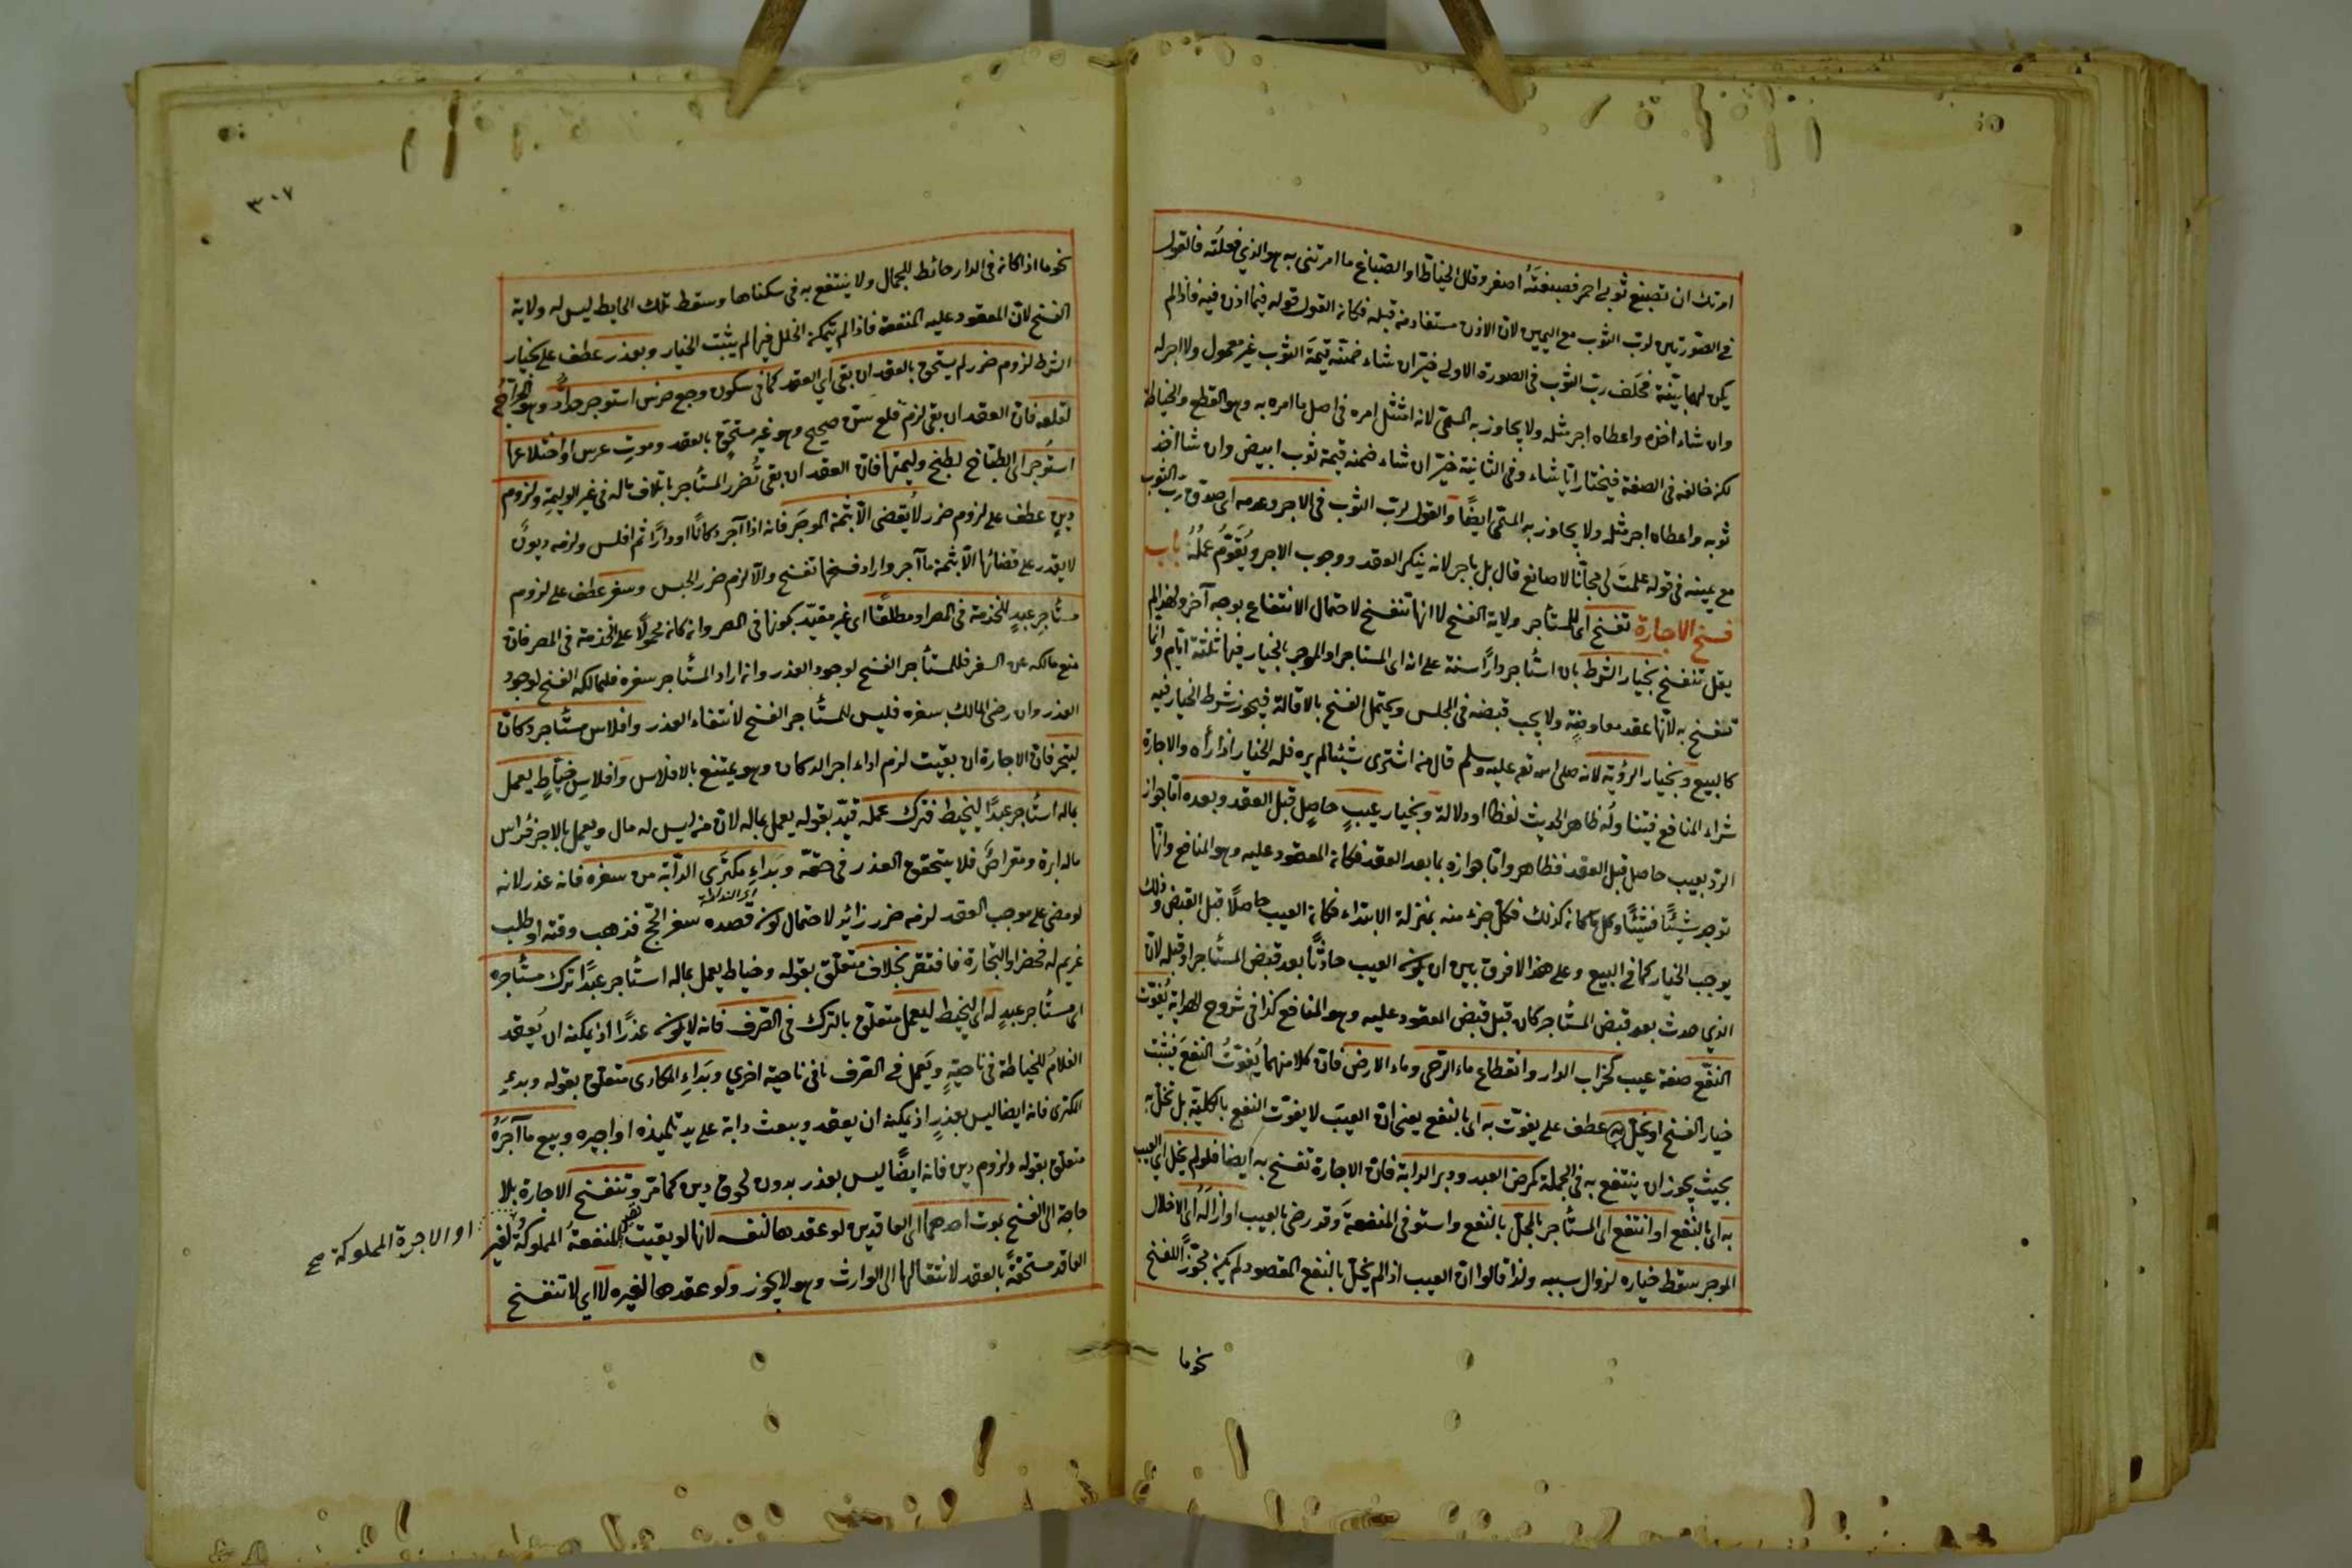 امرتك ان تصبغ ثوبي احمر فصبغتَه اصفر وقال الخياط او الصباغ ما امرتنى به هو الذي فعلتُه فالقول
في الصورتين لرب الثوب مع اليمين لان الاذن مستفاد من قبله فكان القول قوله فيما اذن فيه فاذا لم
يكن لهما بيّنة فحَلَف رب الثوب فى الصورة الاولى خيّر ان شاء ضمّنه قيمة الثوب غير معمول ولا اجر له
وان شاء اخذه واعطاه اجر مثله ولا يجاوز به المسمّى لانه امتثل امره فى اصل ما امره به وهو القطع والخياطة
لكنه خالفه فى الصفة فيختار ايّا شاء وفى الثانية خيّر ان شاء ضمنه قيمة ثوب ابيض وان شا اخذ
ثوبه واعطاه اجر مثله ولا يجاوز به المسمّى ايضًا والقول لرب الثوب فى الاجر وعدمه اى صدق رب الثوب
مع يمينه فى قوله عملتَ لى مجّانا لا صانع قال بل باجر لانه ينكر العقد ووجوب الاجر ويُقَوّم عملُه باب
فسخ الاجارة تفسخ اى للمستأجر ولاية الفسخ لا انها تنفسخ لاحتمال الانتفاع بوجه آخر ولهذا لم
يقل تنفسخ بخيار الشرط بان استأجر دارًا سنة على انه اى المستاجر او الموجر بالخيار فيها ثلثة ايّام وانما
تنفسخ به لانّها عقد معاوضةٍ ولا يجب قبضه فى المجلس ويحتمل الفسخ بالاقالة فيجوز شرط الخيار فيه
كالبيع وبخيار الرؤية لانه صلى الله تع عليه وسلم قال من اشترى شيئا لم يره فله الخيار اذا رأه والاجارة
شراء المنافع فيتناولُه ظاهر الحديث لفظا او دلالة وبخيار عيبٍ حاصِلٍ قبل العقد وبعده اما جواز
الرد بعيب حاصل قبل العقد فظاهر وامّا جوازه بما بعد العقد فكان المعقود عليه وهو المنافع وانّها
توجد شيئًا فشيئًا وكل ما كان كذلك فكل جزء منه بمنزلة الابتداء فكان العيب حاصلًا قبل القبض وذلك
يوجب الخيار كما فى البيع وعلى هذا لا فرق بين ان يكون العيب حادثًا بعد قبض المستأجر او قبله لان
الذي حدث بعد قبض المستأجر كان قبل قبض المعقود عليه وهو المنافع كذا فى شروح الهداية يُفوّت
النفْع صفة عيب كخراب الدار وانقطاع ماء الرّحى وماء الارض فانّ كلا منهما يُفوّتُ النفعَ فيثبت
خيار الفسخ او يخلّ به عطف على يفوّت به اى بالنفع يعنى انّ العيب لا يفوّت النفع بالكلية بل يخلّ به
بحيث يجوز ان ينتفع به فى الجملة كمرض العبد ودبر الدابة فانّ الاجارة تفسخ به ايضا فلو لم يخلّ اى العيب
به اى بالنّفع او انتفع اى المستأجر بالمخلّ بالنفع واستوفى المنفعةَ وقد رضى بالعيب او ازالَهُ اى الاخلال
الموجر سقط خياره لزوال سببه ولذا قالوا انّ العيب اذا لم يخلّ بالنفع المقصود لم يكن مجوّزًا للفسخ
نحو ما
٣٠٧
نحو ما اذا كان فى الدار حائط للجمال ولا ينتفع به فى سكناها وسقط تلك الحايط ليس له ولاية
الفسخ لانّ المعقود عليه المنفعة فاذا لم يتمكن الخلل فيها لم يثبت الخيار وبعذر عطف على بخيار
الشرط لزوم ضرر لم يستحق بالعقد ان بقى اى العقد كما فى سكون وجع ضرس استوجر حدّاد وهو الجراح
لقلعه فانّ العقد ان بقى لزم قلع سنّ صحيح وهو غير مستحقّ بالعقد وموتِ عرس او اختلاعها
استوجر اى الطبّاخ لطبخ وليمتها فانّ العقد ان بقى تُضرر المستأجر باتلاف ماله فى غير الوليمة ولزوم
دينٍ عطف على لزوم ضرر لا يُقضى الّا بثمن الموجَر فانه اذا آجر دكانًا او دارًا ثم افلس ولزمه ديونٌ
لا يقدر على قضائها الّا بثمن ما آجر واراد فسخها تفسخ والّا لزم ضرر الحبس وسفر عطف على لزوم
مستأجر عبدٍ للخدمة فى المصر او مطلقًا اى غير مقيّد بكونها فى المصر وان كان محمولًا على الخدمة فى المصر فانّ
منع مالكه عن السفر فللمستأجر الفسخ لوجود العذر وان اراد المستأجر سفره فلمالكه الفسخ لوجود
العذر وان رضى المالك بسفره فليس للمستأجر الفسخ لانتفاء العذر وافلاس مستأجر دكان
ليتجر فانّ الاجارة ان بقيت لزم اداء اجر الدكان وهو يمتنع بالافلاس وافلاسِ خيّاطٍ يعمل
بماله استأجر عبدًا ليخيط فترك عمله قيّد بقوله يعمل بماله لانّ من ليس له مال ويعمل بالاجر فرأس
ماله ابرة ومقراضٌ فلا يتحقق العذر فى حقّه وبَداءِ مكترَى الدّابة من سفره فانه عذر لانه
لو مضى على موجب العقد لزمه ضرر زائد لاحتمال كون قصده سفر الحج فذهب وقته او طلب
غريم له فحضر او التجارة فافتقر بخلاف متعلّق بقوله وخياط يعمل بماله استأجر عبدًا ترك مستأجره
اى مستأجر عبدٍ له اى ليخيط ليعمل متعلّق بالترك فى الصّرف فانه لا يكون عذرًا اذ يمكنه ان يُعقد
الغلامُ للخياطة فى ناحيةٍ ويَعمل فى الصّرف فى ناحية اخرى وبَداءِ المكارى متعلّق بقوله وبدءِ
المكترى فانه ايضا ليس بعذرٍ اذ يمكنه ان يعقد ويبعث دابة على يد تلميذه او اجيره وبيع ما آجَرَهُ
متعلّق بقوله ولزوم دين فانه ايضًا ليس بعذر بدون لحوق دين كما مرّ وتنفسخ الاجارة بلا
حاجة الى الفسخ بموت احدهما اى العاقدين لو عقدها لنفسه لانها لو بقيت المنفعةُ المملوكةُ لغير
او الاجرة المملوكة صح
العاقد مستحقّةً بالعقد لانتقالها الى الوارث وهو لا يجوز ولو عقدها لغيره لا اى لا تنفسخ